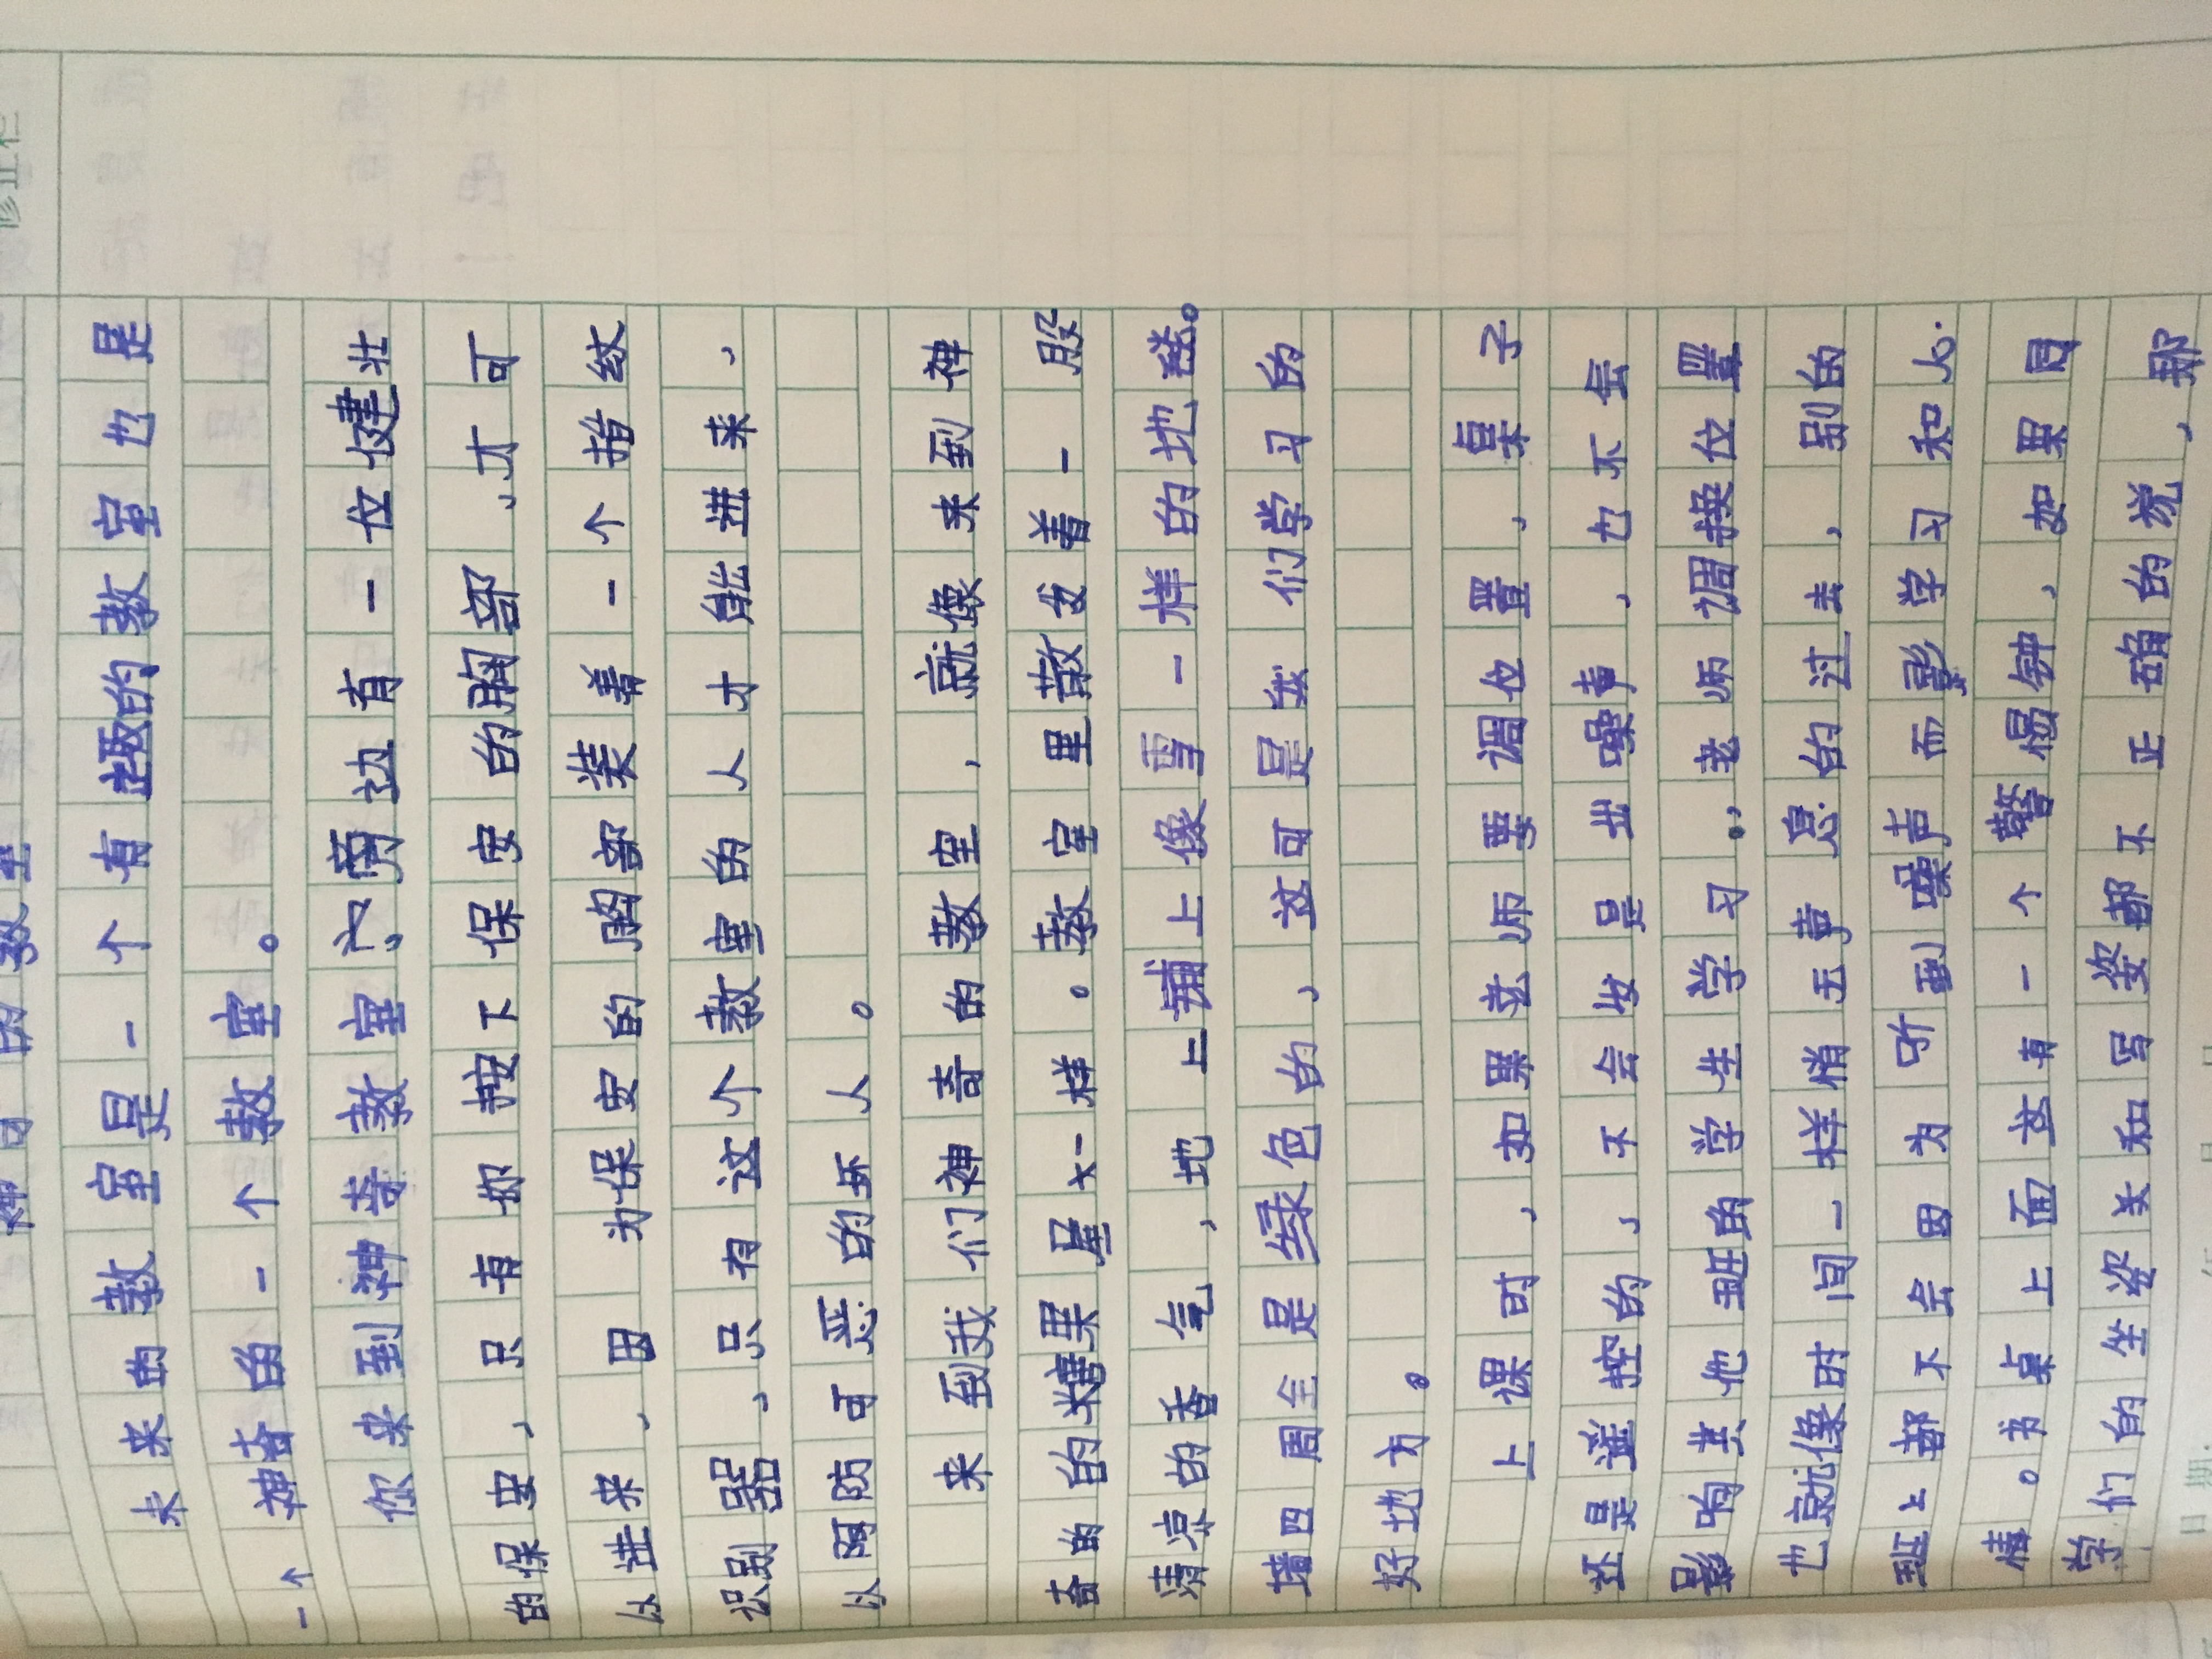 修正栏
神奇的教室
未来的教室是一个有趣的教室也是
一个神奇的一个教室。
你来到神奇教室门旁边有一位健壮
的保安，只有你按下保安的胸部，才可
以进来，因为保安的胸部装着一个指纹
识别器，只有这个教室的人才能进来，
以防可恶的坏人。
来到我们神奇的教室，就像来到神
奇的的糖果屋一样。教室里散发着一股
清凉的香气，地上铺上像雪一样的地毯。
墙四周全是绿色的，这可是我们学习的
好地方。
上课时，如果老师要调位置，桌子
还是遥控的，不会发出噪声，也不会
影响其他班的学生学习。老师调换位置
也就像时间一样悄无声息的过去，别的
班上都不会因为听到噪声而影学习和人
。书桌上面这有一个警惕钟，如果同
学们的坐姿关和写姿都不正确的说，那
日期：